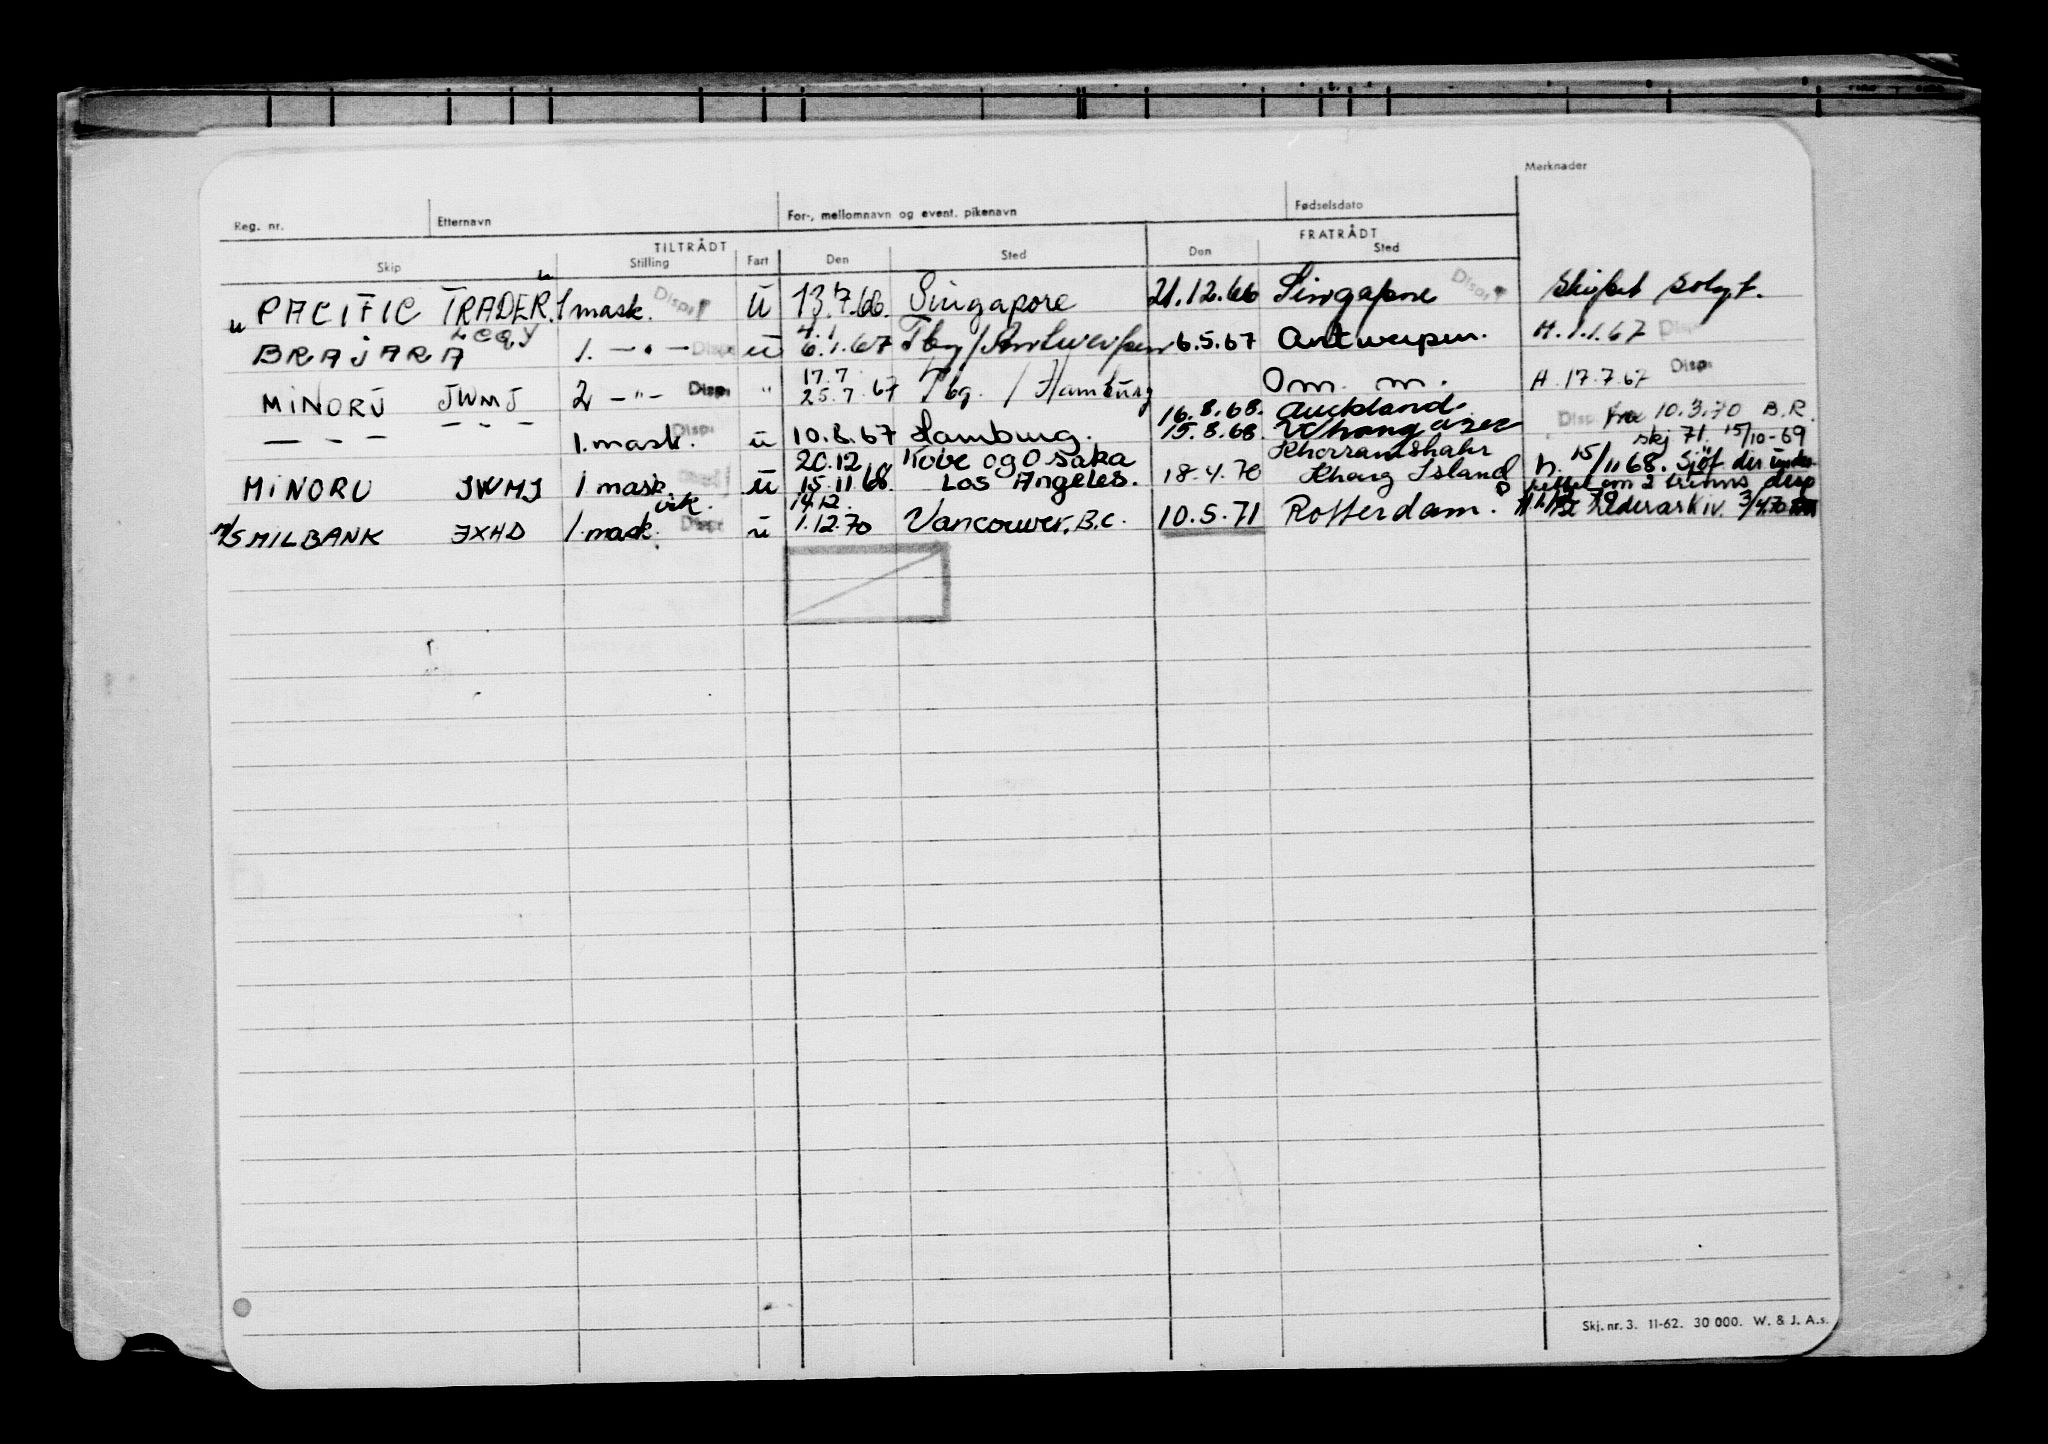 Merknader
Reg. nr. Etternavn For-, mellomnavn og event. pikenavn Fødselsdato
TILTRÅDT FRATRÅDT
Skip Stilling Fart Den Sted Den Sted
"PACIFIC TRADER" 1 mask. Disp. U 13.7.66. Singapore 21.12.66 Singapore Disp. Skipet solgt.
LEQY 4.1
BRAJARA 1. — " — Disp. U 6.1.67 Tbg/Antwerpen 6.5.67 Antwerpen. H.1.1.67 Disp.
17.7
MINORU JWMJ 2 — " — Disp. " 25.7.67 Tbg. / Hamburg Om. m. H. 17.7.67 Disp.
16.8.68. Auckland Disp. 10.3.70 B.R.
— — — — — — 1. mask. Disp. U 10.8.67 Hamburg. 15.8.68. skj 71. 15/10-69
20.12 Kobe og Osaka Khorramshahr
MINORU JWMJ 1 mask U 15.11.68. Los Angeles. 18.4.70 Kharg Island 15/11 68. Sjöf. dir
vik. 14.12.
M/S MILBANK JXHD 1. mask. Disp. U 1.12.70 Vancouver, B.C. 10.5.71 Rotterdam.
Skj. nr. 3. 11-62. 30 000. W. & J. A.s.